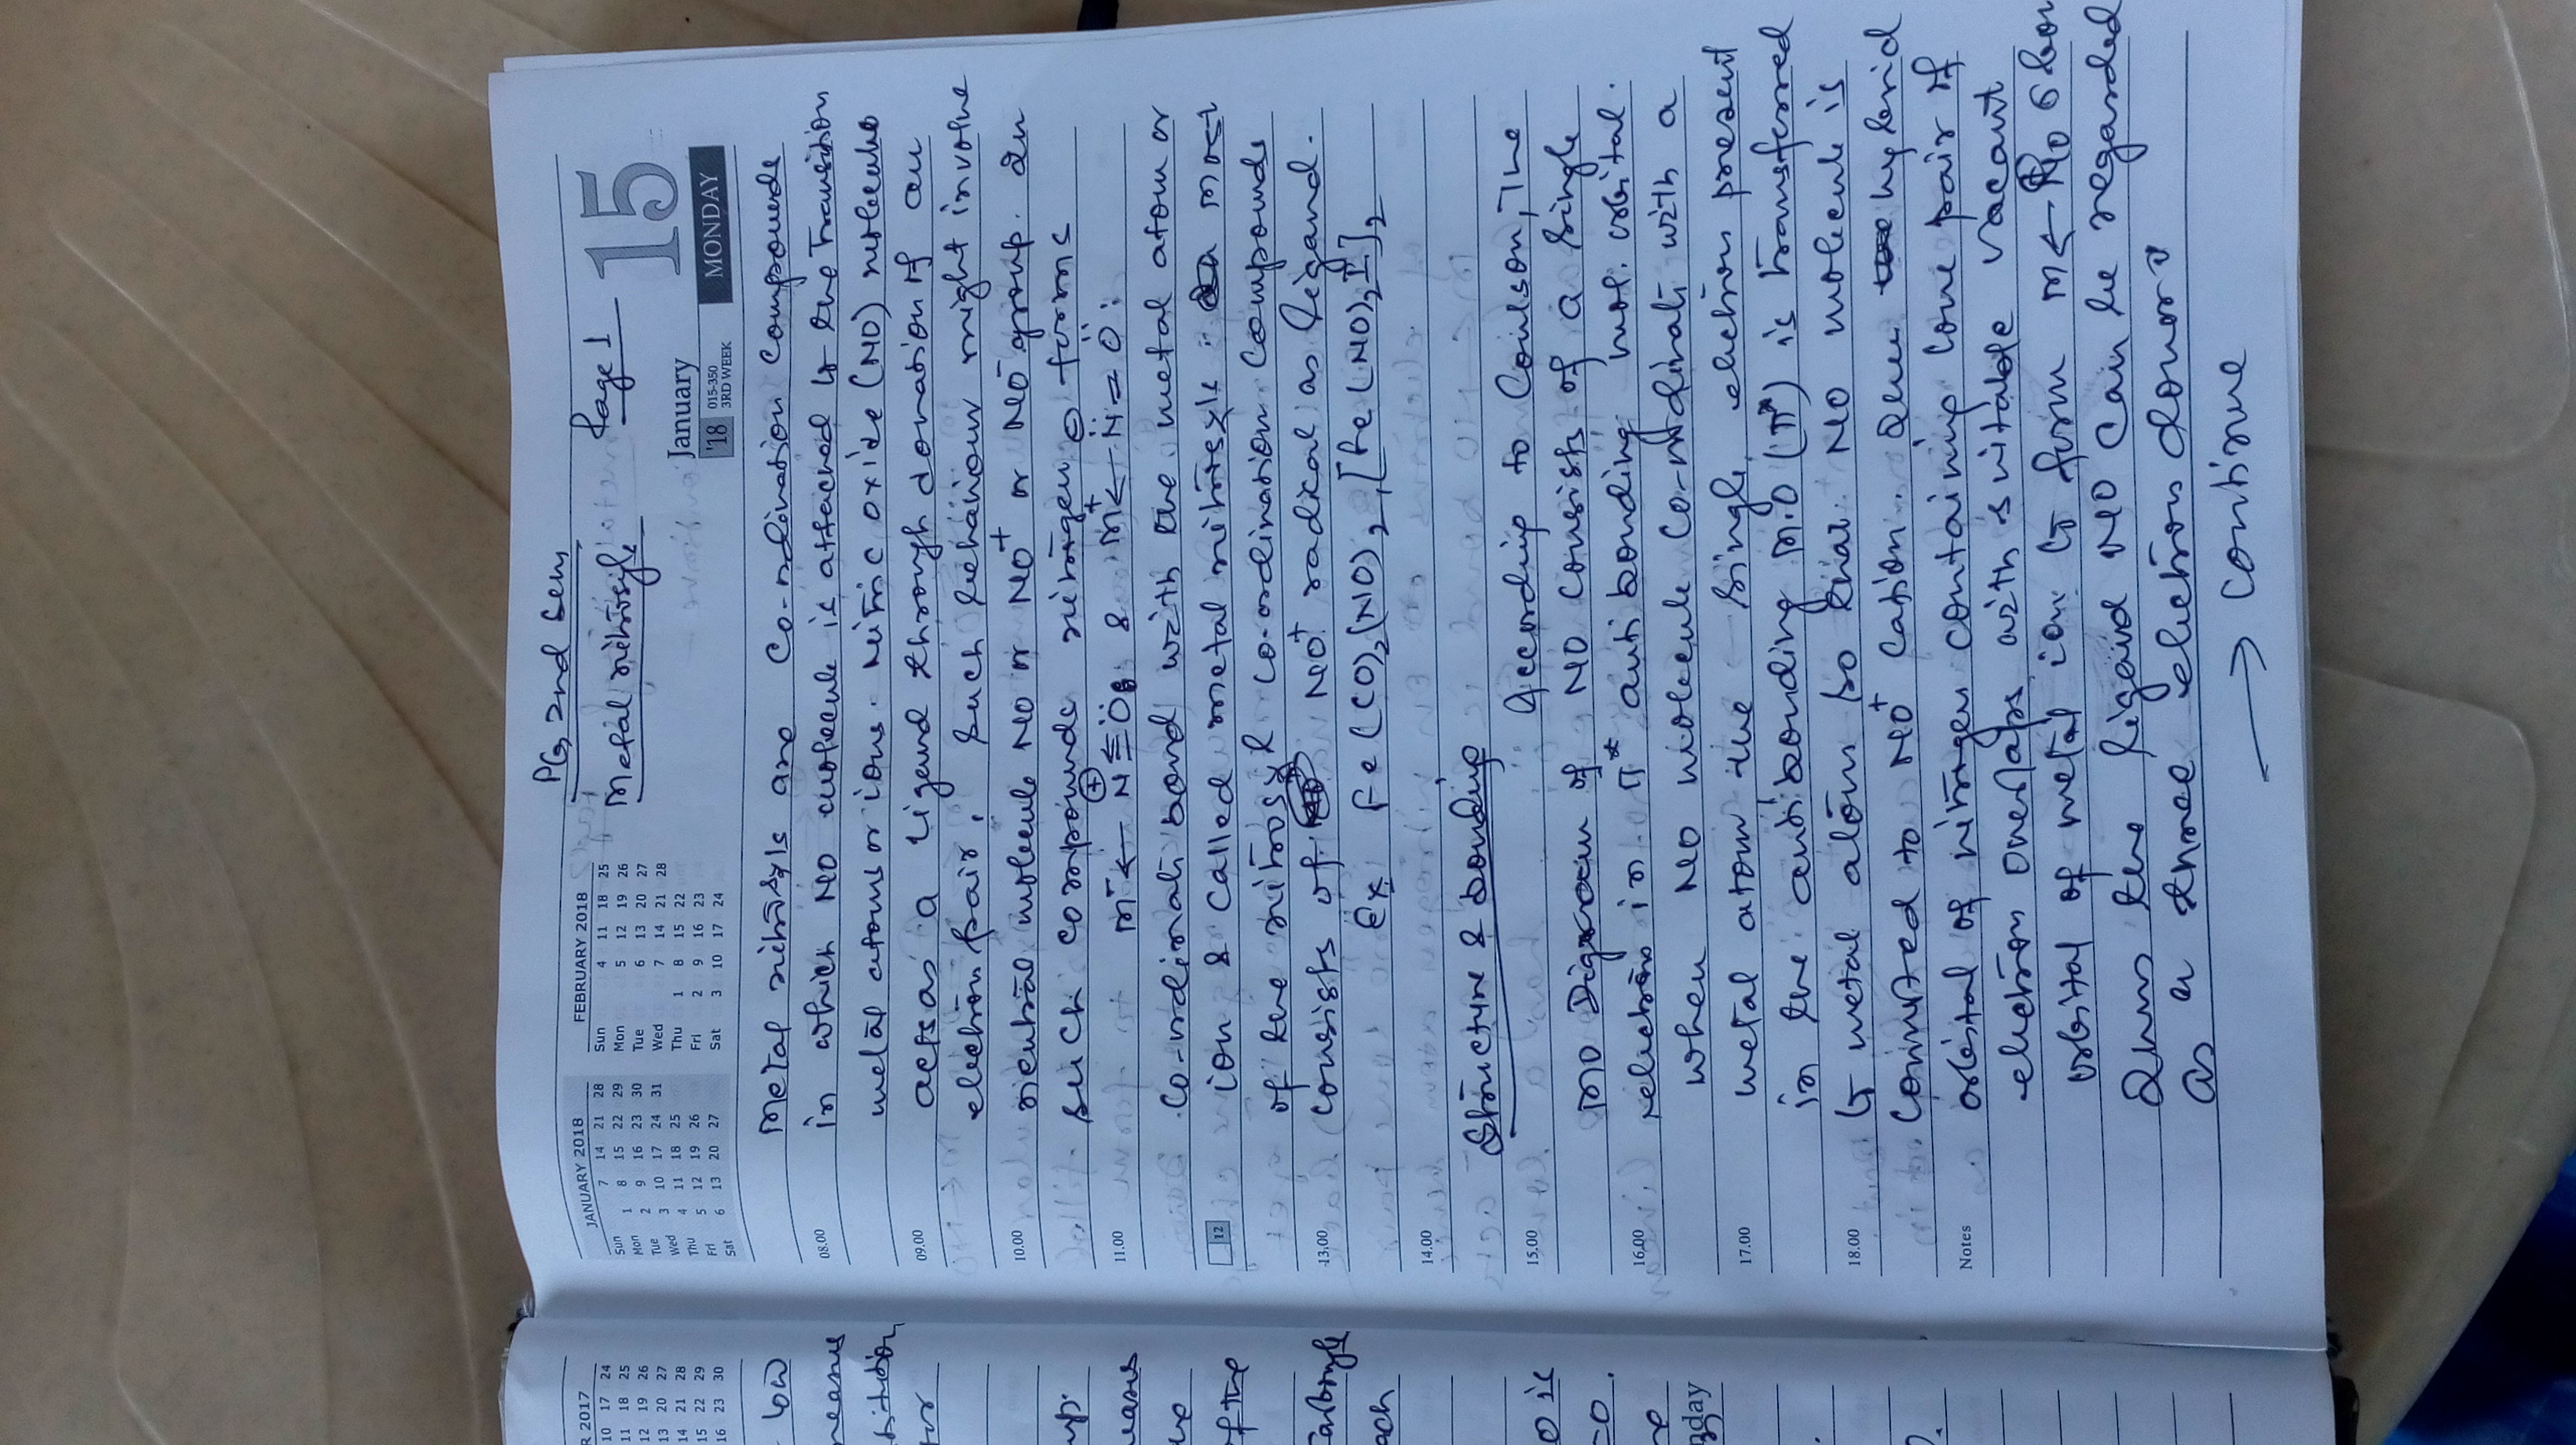 PG 2nd Sem
Page 1
Metal nitrosyls
15
January
MONDAY
'18
015-350
3RD WEEK
JANUARY 2018
Sun 7 14 21 28
Mon 1 8 15 22 29
Tue 2 9 16 23 30
Wed 3 10 17 24 31
Thu 4 11 18 25
Fri 5 12 19 26
Sat 6 13 20 27
FEBRUARY 2018
Sun 4 11 18 25
Mon 5 12 19 26
Tue 6 13 20 27
Wed 7 14 21 28
Thu 1 8 15 22
Fri 2 9 16 23
Sat 3 10 17 24
Metal nitrosyls are Co-ordination compounds
08.00 in which NO molecule is attached to the transition
metal atoms or ions. Nitric oxide (NO) molecule
09.00 acts as a ligand through donation of an
electron pair, Such behaviour might involve
10.00 neutral molecule NO or NO⁺ or NO⁻ group. In
such compounds nitrogen forms
11.00 M⁻ ← N≡O: & M⁺ ← N = O:
Co-ordinate bond with the metal atom or
12 ion & called metal nitrosyls. most
of the nitrosyl co-ordination compounds
13.00 consists of NO⁺ radical as ligand.
Ex Fe(CO)₂(NO)₂, [Fe(NO)₂I]₂
14.00
Structure & bonding
15.00 According to Coulson, The
MO Digram of NO consists of a single
16.00 electron in π* anti bonding mol. orbital.
when NO molecule Co-ordinate with a
17.00 metal atom the single electron present
in the antibonding M.O (π*) is transferred
18.00 to metal atom so that NO molecule is
converted to NO⁺ cation. The hybrid
Notes orbital of nitrogen containing lone pair of
electron overlaps with suitable vacant
orbital of metal ion to form M ← NO σ bon
Thus the ligand NO can be regarded
as a three electron donor
→ continue
R 2017
10 17 24
11 18 25
12 19 26
13 20 27
14 21 28
15 22 29
16 23 30
low
means
sition
up.
means
of the
Carbonyl
ach
O is
=O.
nday